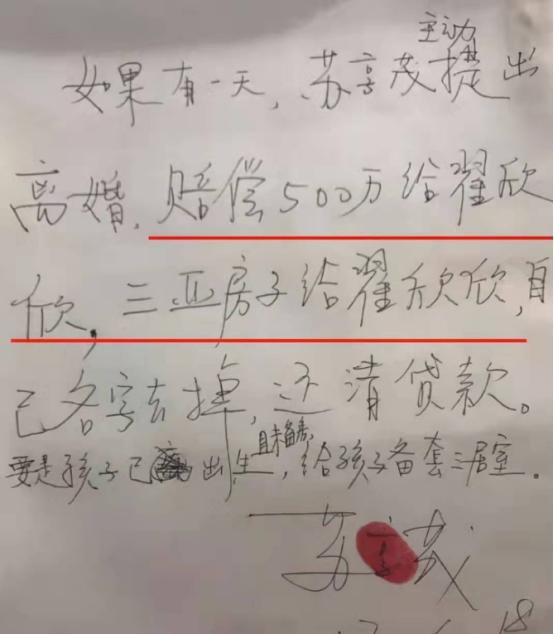 主动
如果有一天,苏享茂提出
离婚,赔偿500万给翟欣
欣,三亚房子给翟欣欣,自
己名字去掉,还清贷款。
且未备房,
要是孩子已出生,给孩子备套三居室.
苏享茂
18